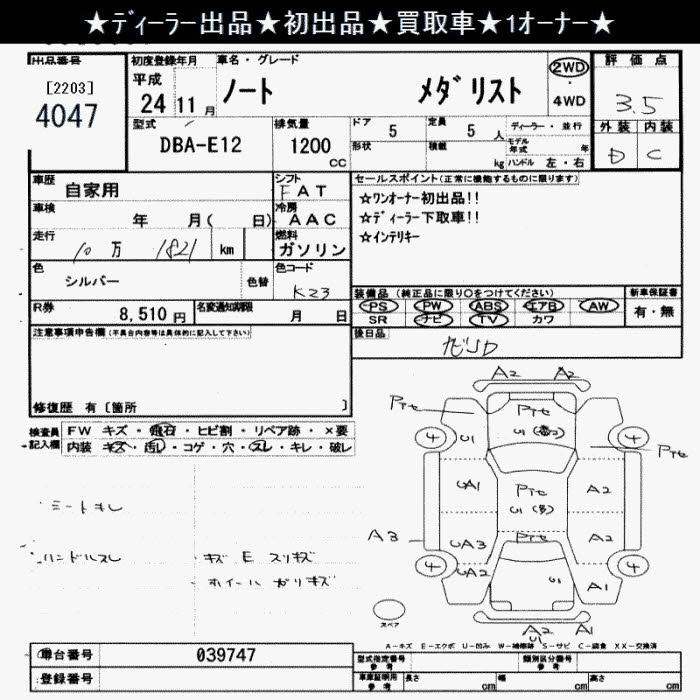 ★ディーラー出品★初出品★買取車★1オーナー★
出品番号
[2203]
4047
初度登録年月
平成
24 11 月
車名・グレード
ノート メダリスト
2WD
・
4WD
評価点
3.5
外装 内装
D C
型式
DBA-E12
排気量
1200
CC
ドア 5
定員 5 人
形状
積載 kg
ディーラー・並行
モデル年式 年
ハンドル 左・右
車歴
自家用
シフト
FAT
車検
年 月( 日)
冷房
AAC
走行
10万 1821 km
燃料
ガソリン
色
シルバー
色替
色コード
K23
R券
8,510 円
名変通知期限
月 日
セールスポイント(正常に機能するものに限ります)
★ワンオーナー初出品!!
★ディーラー下取車!!
★インテリキー
装備品(純正品に限り○をつけてください)
PS PW ABS エアB AW
SR ナビ TV カワ
新車保証書
有・無
後日品
ナビSD
注意事項申告欄(不具合内容等は具体的に記入して下さい)
修復歴 有〔箇所 〕
検査員記入欄
FW キズ・飛石・ヒビ割・リペア跡・×要
内装 キズ・汚レ・コゲ・穴・スレ・キレ・破レ
シートキレ
ハンドルスレ
キズ E スリキズ
ホイールガリキズ
A2 A2
Pte Pte
U1 U1
4 4
Pte
UA1 Pte A2
U1(多)
A3 UA3 Pte A2
4 4
UA2 U1 A1
A2 A1
U1
スペア
A-キズ E-エクボ U-凹み W-補修跡 S-サビ C-腐食 XX-交換済
車台番号
039747
登録番号
型式指定番号
参考
類別区分番号
参考
車庫証明用
参考
長さ cm
幅 cm
高さ cm